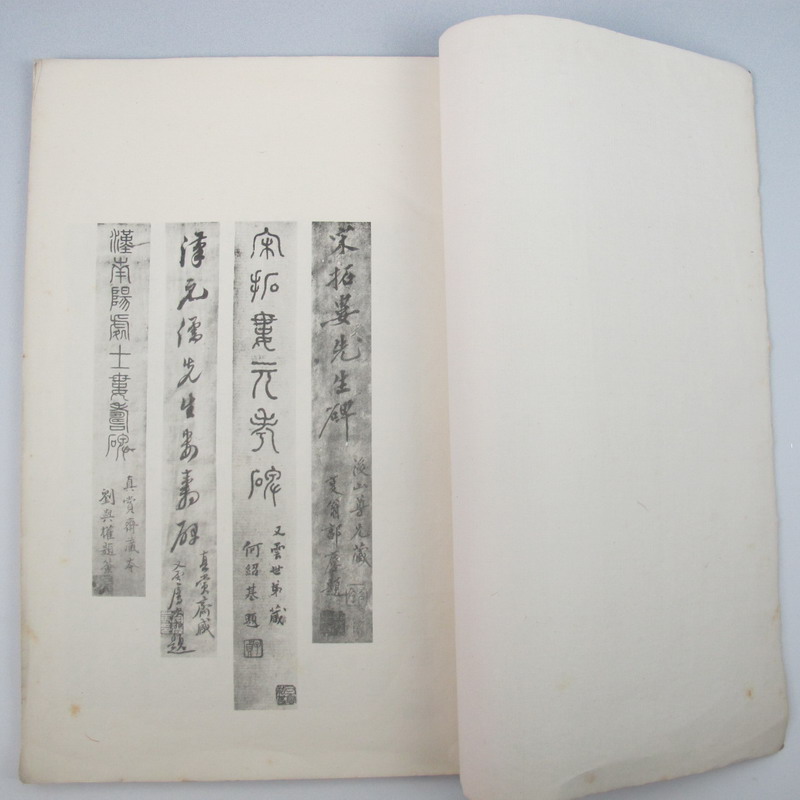 宋拓婁先生碑
尊兄藏
題
宋拓婁元考碑
又雲世弟藏
何紹基題
漢元儒先生婁壽碑
真賞齋藏
題
漢南陽處士婁壽碑
真賞齋藏本
劉權題